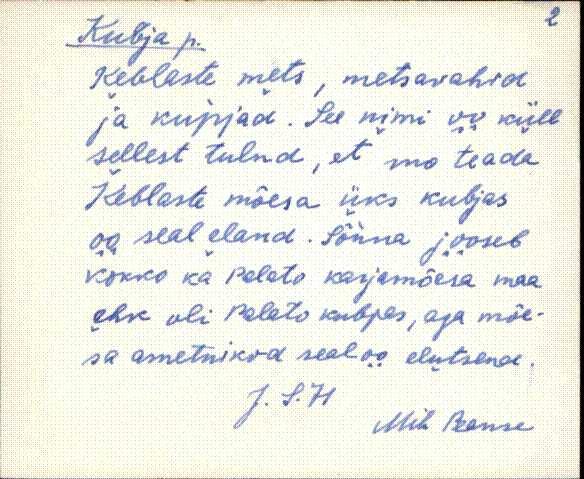 2
Kubja p.
Keblaste mets, metsavahid
ja kupjad. See nimi oo küll
sellest tulnd, et mo teada
Keblaste mõesa üks kubjas
oo seal eland. Sõnna jooseb
kokko ka Palato karjamõesa maa
ehk oli Palato kubjas, aga mõe-
sa ametnikod seal oo elutsend.
J. S. H
Mih